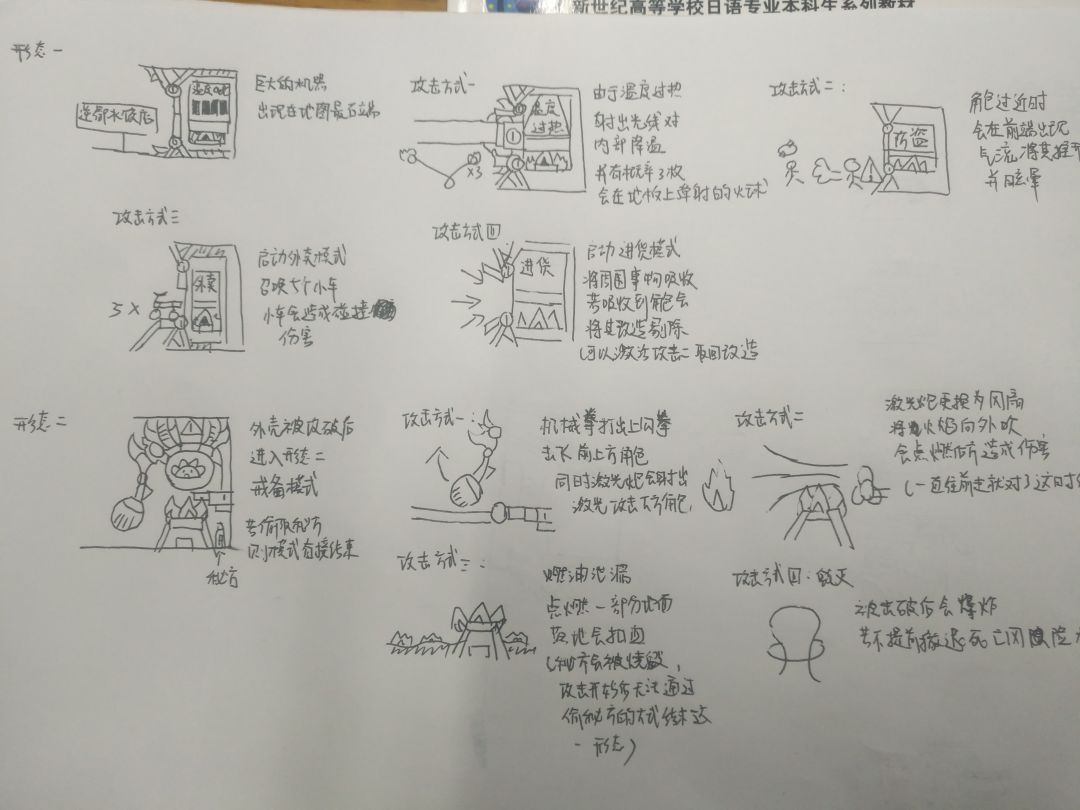 新世纪高等学校日语专业本科生系列教材
形态一
巨大的机器
出现在地图最右端
攻击方式一
温度
过热
×3
由于温度过热
射出光线对
内部降温
并有概率3枚
会在地板上弹射的火球
攻击方式二：
防盗
角色过近时
会在前端出现
气流将其推
并眩晕
攻击方式三
外卖
5×
启动外卖模式
召唤5个小车
小车会造成碰撞
伤害
攻击方式四
进货
启动进货模式
将周围事物吸收
若吸收到角色会
将其改造剔除
(可以激活攻击二取回改造
形态二
外壳被攻破后
进入形态二
戒备模式
若偷取秘方
则模式直接结束
秘方
攻击方式一：
机械拳打出上闪拳
击飞前上方角色
同时激光炮会射出
激光攻击下方角色,
攻击方式二
激光炮更换为风扇
将火焰向外吹
会点燃 造成伤害
(一直往前走就对了这时
攻击方式三：
燃油泄漏
点燃一部分地面
落地会扣血
(秘方会被烧毁,
攻击开始后无法通过
偷秘方的方式结束这
一形态)
攻击方式四：毁灭
被击破后会爆炸
若不提前撤退死亡风险